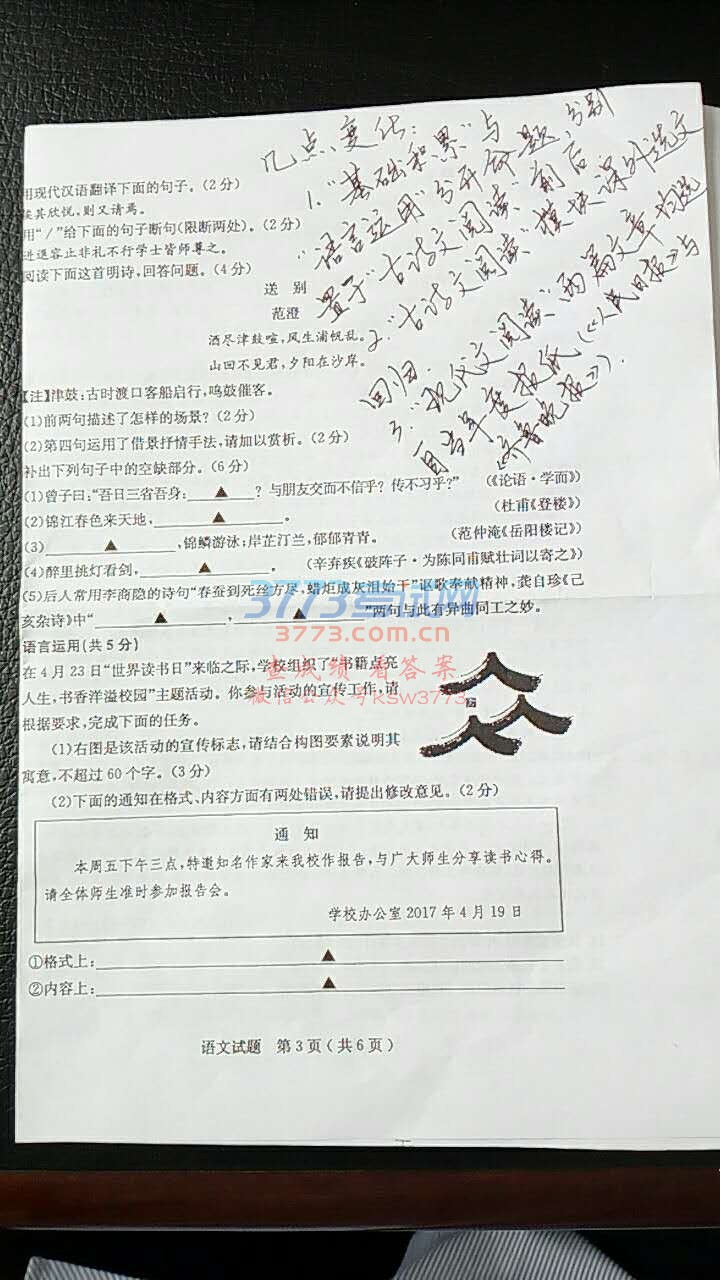 几点变化：
1."基础积累"与
"语言运用"分开命题,分别
置于"古诗文阅读"前后
2."古诗文阅读"模块课外选文
回归.
3."现代文阅读"两篇文章均选
自当年度报纸(《人民日报》与
《齐鲁晚报》).
用现代汉语翻译下面的句子。(2分)
俟其欣悦,则又请焉。
用"/"给下面的句子断句(限断两处)。(2分)
进退容止非礼不行学士皆师尊之。
阅读下面这首明诗,回答问题。(4分)
送 别
范澄
酒尽津鼓喧,风生浦帆乱。
山回不见君,夕阳在沙岸。
【注】津鼓:古时渡口客船启行,鸣鼓催客。
(1)前两句描述了怎样的场景?(2分)
(2)第四句运用了借景抒情手法,请加以赏析。(2分)
补出下列句子中的空缺部分。(6分)
(1)曾子曰:"吾日三省吾身:____▲____?与朋友交而不信乎?传不习乎?" (《论语·学而》)
(2)锦江春色来天地,____▲____。 (杜甫《登楼》)
(3)____▲____,锦鳞游泳;岸芷汀兰,郁郁青青。 (范仲淹《岳阳楼记》)
(4)醉里挑灯看剑,____▲____。 (辛弃疾《破阵子·为陈同甫赋壮词以寄之》)
(5)后人常用李商隐的诗句"春蚕到死丝方尽,蜡炬成灰泪始干"讴歌奉献精神,龚自珍《己
亥杂诗》中"____▲____,____▲____"两句与此有异曲同工之妙。
3773考试网
3773.com.cn
查成绩 看答案
微信公众号KSW3773
语言运用(共5分)
在4月23日"世界读书日"来临之际,学校组织了"书籍点亮
人生,书香洋溢校园"主题活动。你参与活动的宣传工作,请
根据要求,完成下面的任务。
(1)右图是该活动的宣传标志,请结合构图要素说明其
寓意,不超过60个字。(3分)
(2)下面的通知在格式、内容方面有两处错误,请提出修改意见。(2分)
通 知
本周五下午三点,特邀知名作家来我校作报告,与广大师生分享读书心得。
请全体师生准时参加报告会。
学校办公室2017年4月19日
①格式上:____▲____
②内容上:____▲____
语文试题 第3页(共6页)